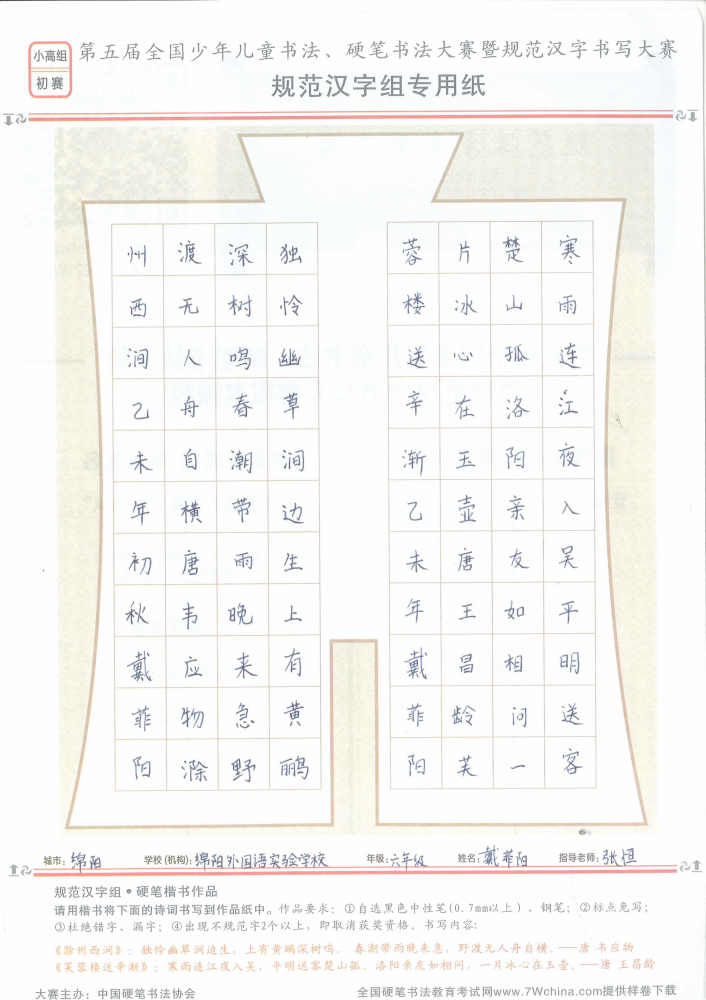 小高组
初赛
第五届全国少年儿童书法、硬笔书法大赛暨规范汉字书写大赛
规范汉字组专用纸
寒雨连江夜入吴平明送客
楚山孤洛阳亲友如相问一
片冰心在玉壶唐王昌龄芙
蓉楼送辛渐乙未年戴菲阳
独怜幽草涧边生上有黄鹂
深树鸣春潮带雨晚来急野
渡无人舟自横唐韦应物滁
州西涧乙未年初秋戴菲阳
城市：绵阳 学校(机构)：绵阳外国语实验学校 年级：六年级 姓名：戴菲阳 指导老师：张恒
规范汉字组•硬笔楷书作品
请用楷书将下面的诗词书写到作品纸中。作品要求：①自选黑色中性笔(0.7mm以上)、钢笔；②标点免写；
③杜绝错字、漏字；④出现不规范字2个以上，即取消获奖资格。书写内容：
《滁州西涧》：独怜幽草涧边生，上有黄鹂深树鸣。 春潮带雨晚来急，野渡无人舟自横。——唐 韦应物
《芙蓉楼送辛渐》：寒雨连江夜入吴，平明送客楚山孤。洛阳亲友如相问，一片冰心在玉壶。——唐 王昌龄
大赛主办：中国硬笔书法协会 全国硬笔书法教育考试网www.7Wchina.com提供样卷下载